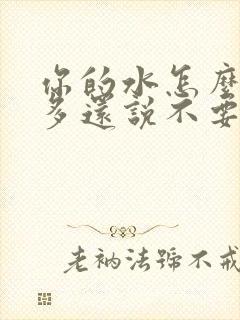 你的水怎麼
多還說不要
老衲法號不戒